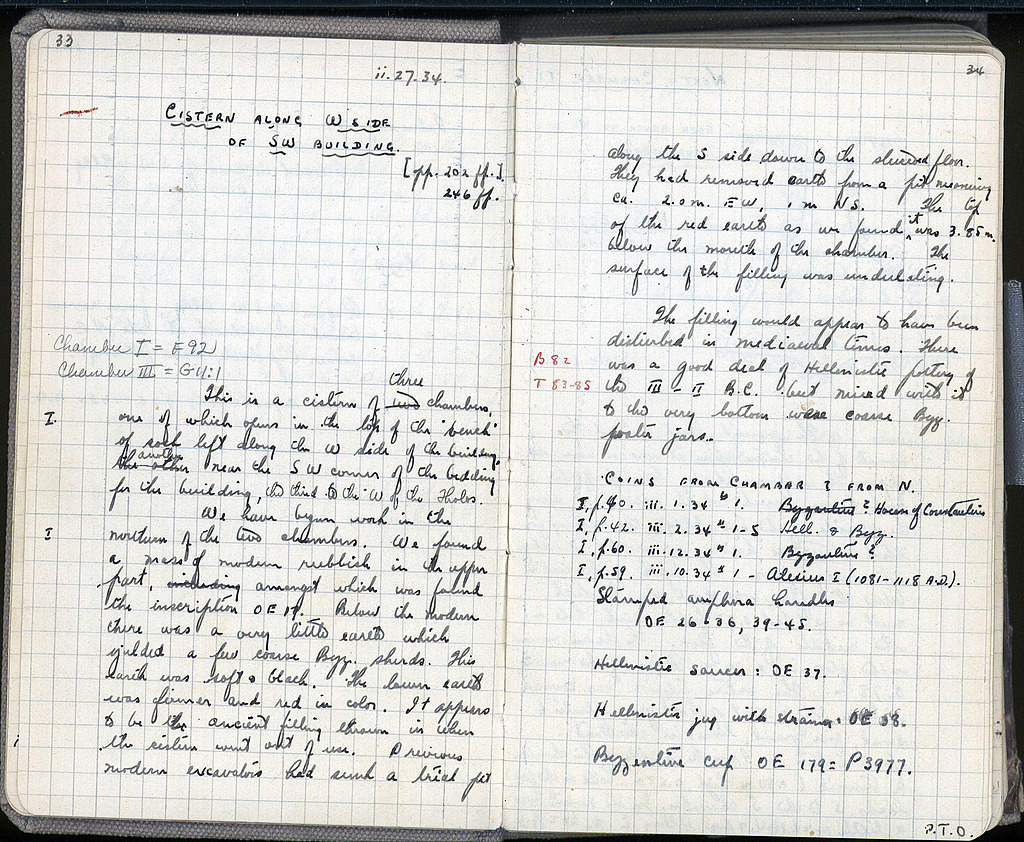 33
ii.27.34.
CISTERN ALONG W SIDE
OF SW BUILDING.
[pp. 202 ff.]
246 ff.
Chamber I = E92
Chamber III = G11:1
three
This is a cistern of two chambers,
I. one of which opens in the top of the "bench"
of rock left along the W side of the building,
another
the other near the SW corner of the bedding
for the building, the third to the W of the Tholos.
We have begun work in the
I northern of the two chambers. We found
a mass of modern rubbish in the upper
part, including amongst which was found
the inscription OE 18. Below the modern
there was a very little earth which
yielded a few coarse Byz. sherds. This
earth was soft & black. The lower earth
was firmer and red in color. It appears
to be the ancient filling thrown in when
the cistern went out of use. Previous
modern excavators had sunk a trial pit
34
along the S side down to the stuccoed floor.
They had removed earth from a pit measuring
ca. 2.0 m. EW, 1 m NS. The top
of the red earth as we found it was 3.85 m.
below the mouth of the chamber. The
surface of the filling was undulating.
The filling would appear to have been
disturbed in mediaeval times. There
B 82 was a good deal of Hellenistic pottery of
T 83-85 the III - II B.C. but mixed with it
to the very bottom were coarse Byz.
plaster jars.
COINS FROM CHAMBER I FROM N.
I, p.40. iii. 1.34 # 1. Byzantine ? House of Constantine
I, p.42. iii. 2.34 # 1-5 Hell. & Byz.
I, p.60. iii.12.34 # 1. Byzantine ?
I, p.59. iii.10.34 # 1 - Alexius I (1081-1118 A.D.).
Stamped amphora handles
OE 26-36, 39-45.
Hellenistic saucer: OE 37.
Hellenistic jug with strainer: OE 38.
Byzantine cup OE 179 = P 3977.
P.T.O.